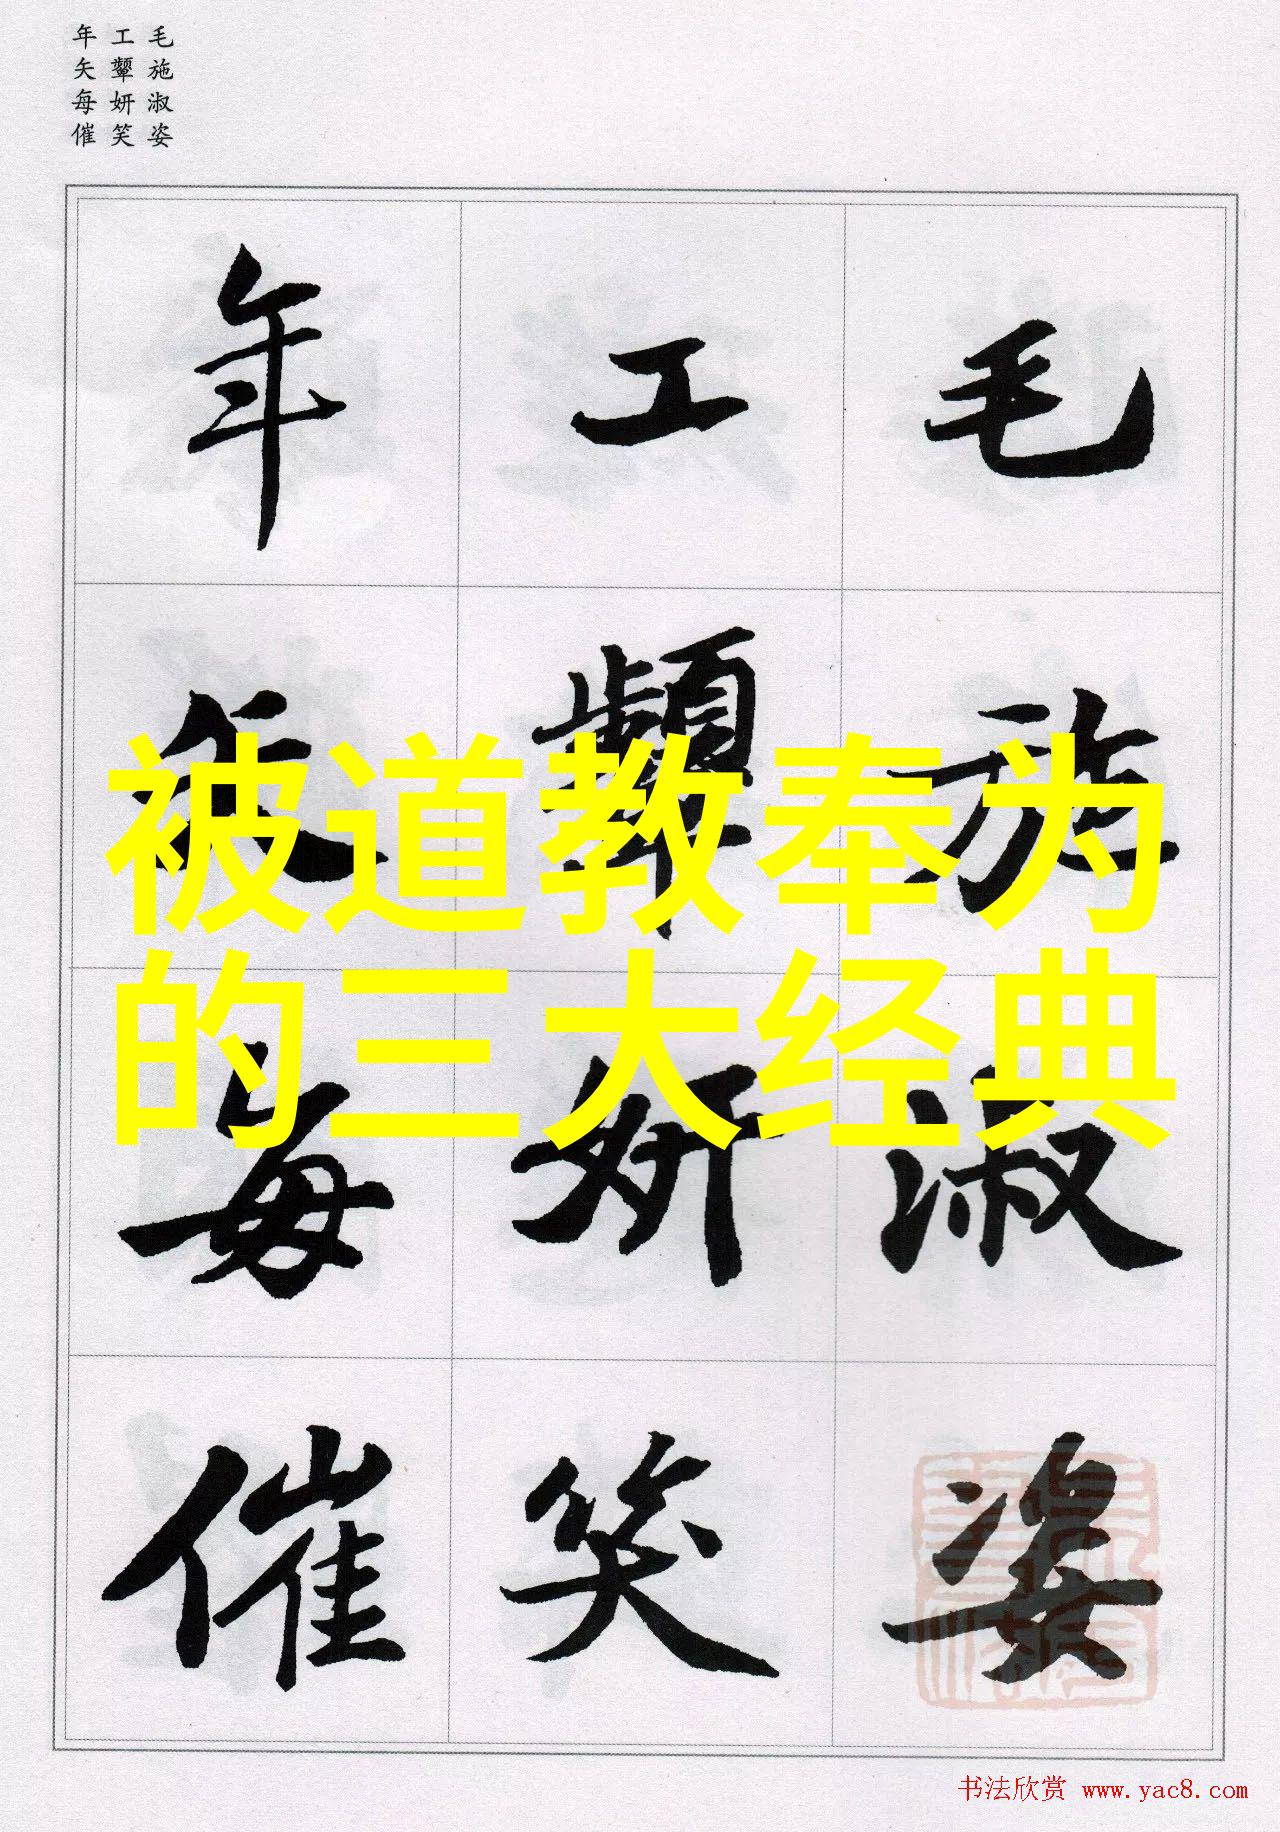 毛施淑姿
工颦妍笑
年矢每催
毛施淑姿
工颦妍笑
年矢每催
被道教奉为
的三大经典
书法欣赏 www.yac8.com